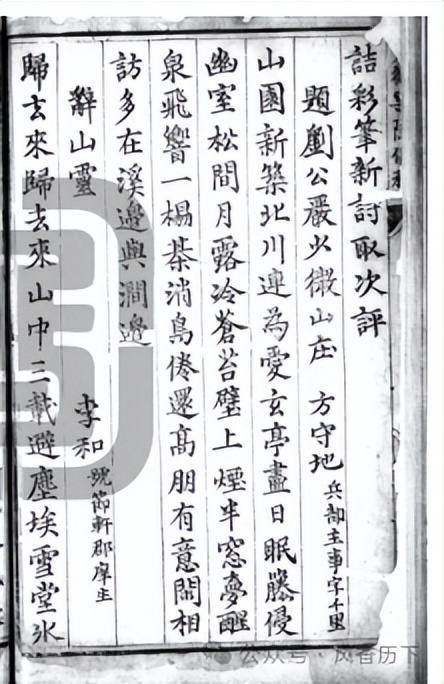 詰彩筆新詩取次評
題劉公嚴少微山庄 方守地 兵部主事字千里
山園新築北川連為愛玄亭盡日眠藤優
幽室松間月露冷蒼苔壁上煙半窓夢醒
泉飛響一榻茶消鳥倦還高朋有意閒相
訪多在溪邊與澗邊
辭山靈 李和 號節軒郡庠生
歸去來歸去來山中三載避塵埃雪堂氷
公众号 · 风香历下